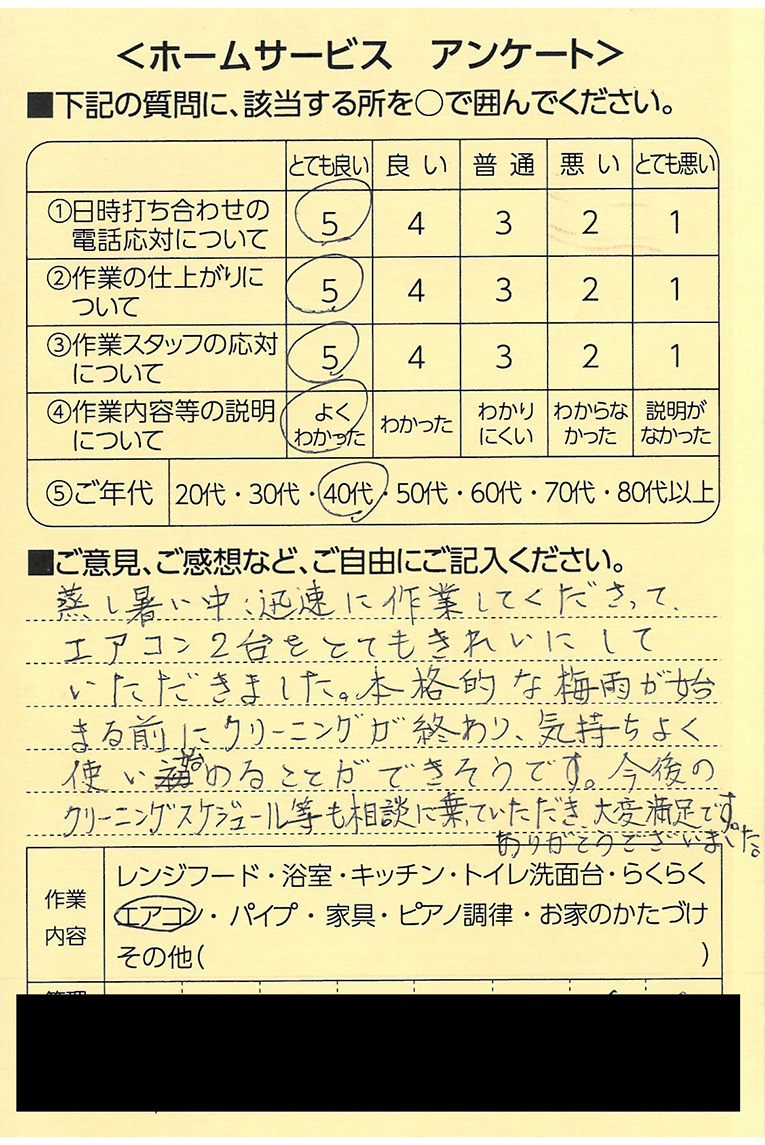 ＜ホームサービス　アンケート＞
■下記の質問に、該当する所を○で囲んでください。
とても良い 良い 普通 悪い とても悪い
①日時打ち合わせの
電話応対について 5 4 3 2 1
②作業の仕上がりに
ついて 5 4 3 2 1
③作業スタッフの応対
について 5 4 3 2 1
④作業内容等の説明
について よくわかった わかった わかりにくい わからなかった 説明がなかった
⑤ご年代 20代・30代・40代・50代・60代・70代・80代以上
■ご意見、ご感想など、ご自由にご記入ください。
蒸し暑い中、迅速に作業してくださって、
エアコン2台をとてもきれいにして
いただきました。本格的な梅雨が始
まる前にクリーニングが終わり、気持ちよく
使い始めることができそうです。今後の
クリーニングスケジュール等も相談に乗っていただき、大変満足です。
ありがとうございました。
作業
内容
レンジフード・浴室・キッチン・トイレ洗面台・らくらく
エアコン・パイプ・家具・ピアノ調律・お家のかたづけ
その他(　　　)